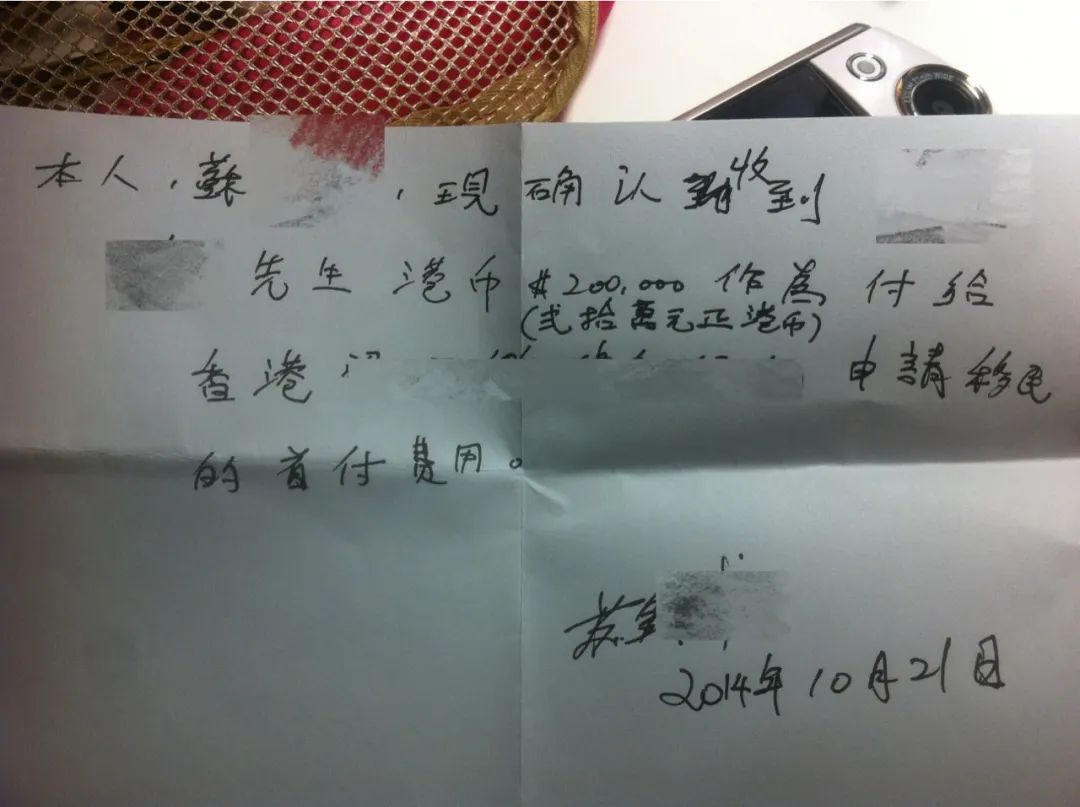 本人，蘇，現确认收到
先生 港币 $200,000 作為 付給
(弍拾萬元正港币)
香港 申請移民
的首付费用。
苏
2014年10月21日